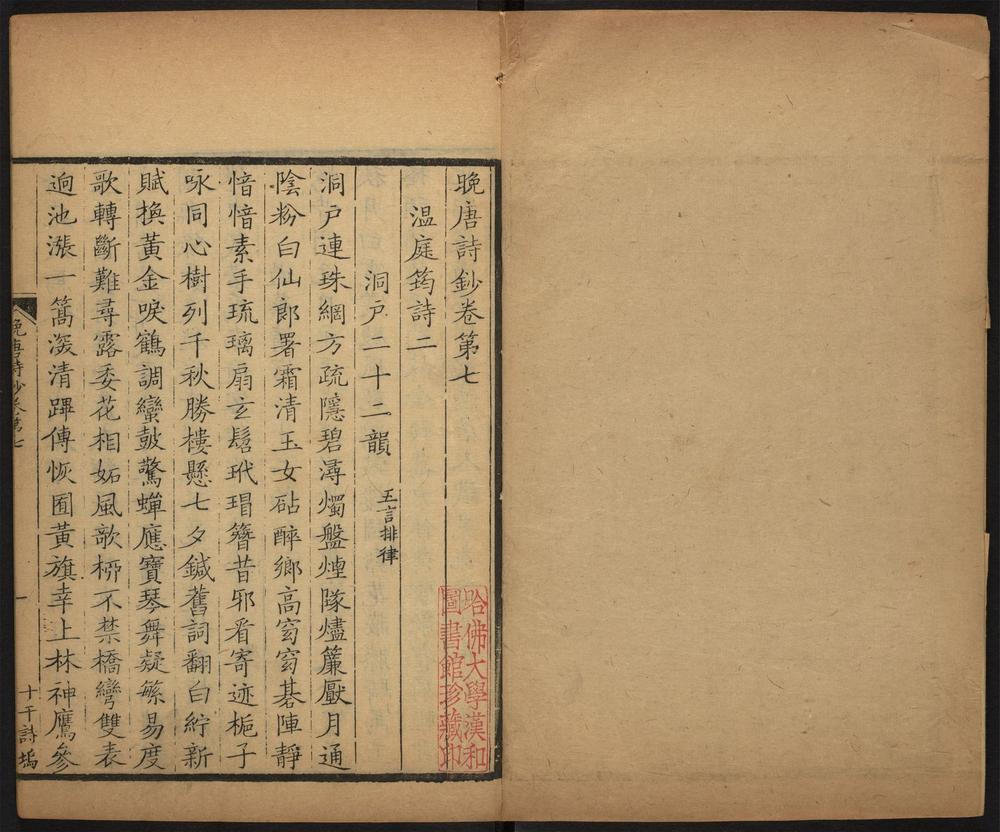 晚唐詩鈔卷第七
溫庭筠詩二
洞戶二十二韻 五言排律
洞戶連珠網方疏隱碧潯燭盤煙隊燼簾壓月通
陰粉白仙郎署霜清玉女砧醉鄉高窈窈碁陣靜
愔愔素手琉璃扇玄髫玳瑁簪昔邪看寄迹梔子
咏同心樹列千秋勝樓懸七夕鍼舊詞翻白紵新
賦換黃金唳鶴調蠻鼓驚蟬應寶琴舞疑繁易度
歌轉斷難尋露委花相妬風欹桺不禁橋彎雙表
逈池漲一篙深清蹕傳恢囿黃旗幸上林神鷹參
晚唐詩鈔卷第七
一
十干詩塢
哈佛大學漢和
圖書館珍藏印